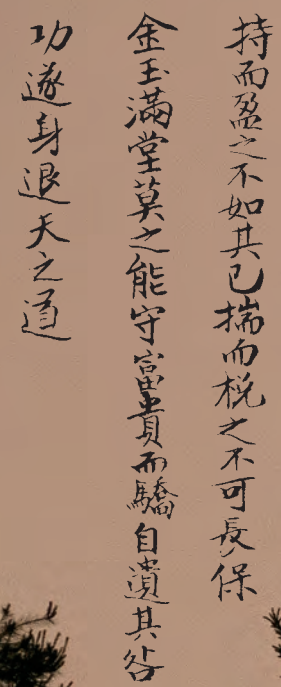 持而盈之不如其已揣而梲之不可長保
金玉滿堂莫之能守富貴而驕自遺其咎
功遂身退天之道